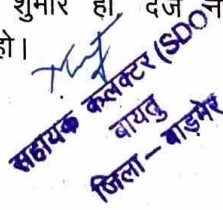 शुमार हो दर्ज न
हो।
सहायक कलेक्टर (SDO
बायतु
जिला – बाड़मेर